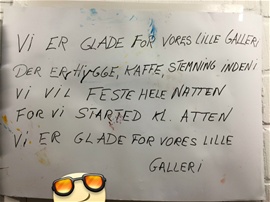 Vi ER GLADE FOR VORES LILLE GALLERi
DER ER HYGGE, KAFFE, STEMNING INDENi
Vi VIL FESTE HELE NATTEN
FOR Vi STARTED KL. ATTEN
Vi ER GLADE FOR VORES LILLE
GALLERi